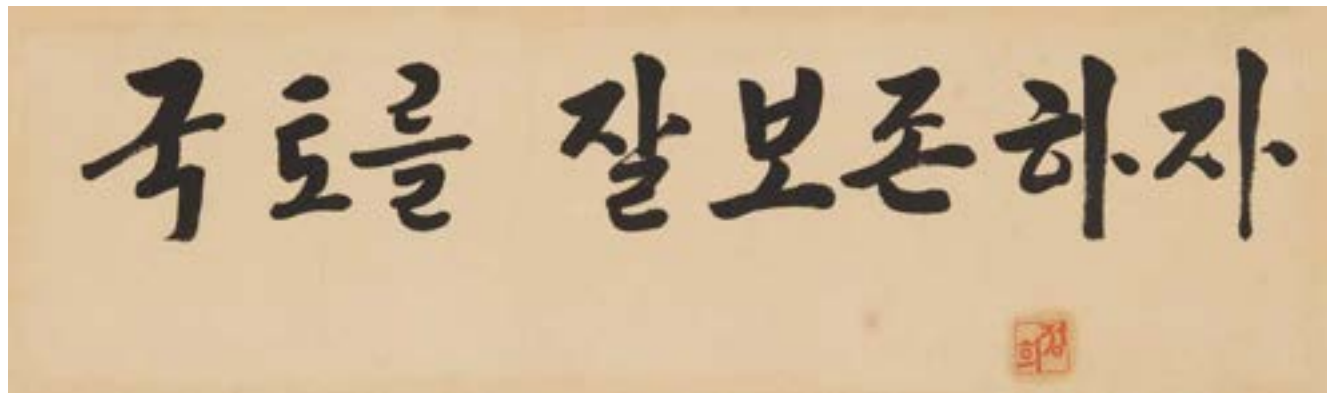 국토를 잘보존하자
정희